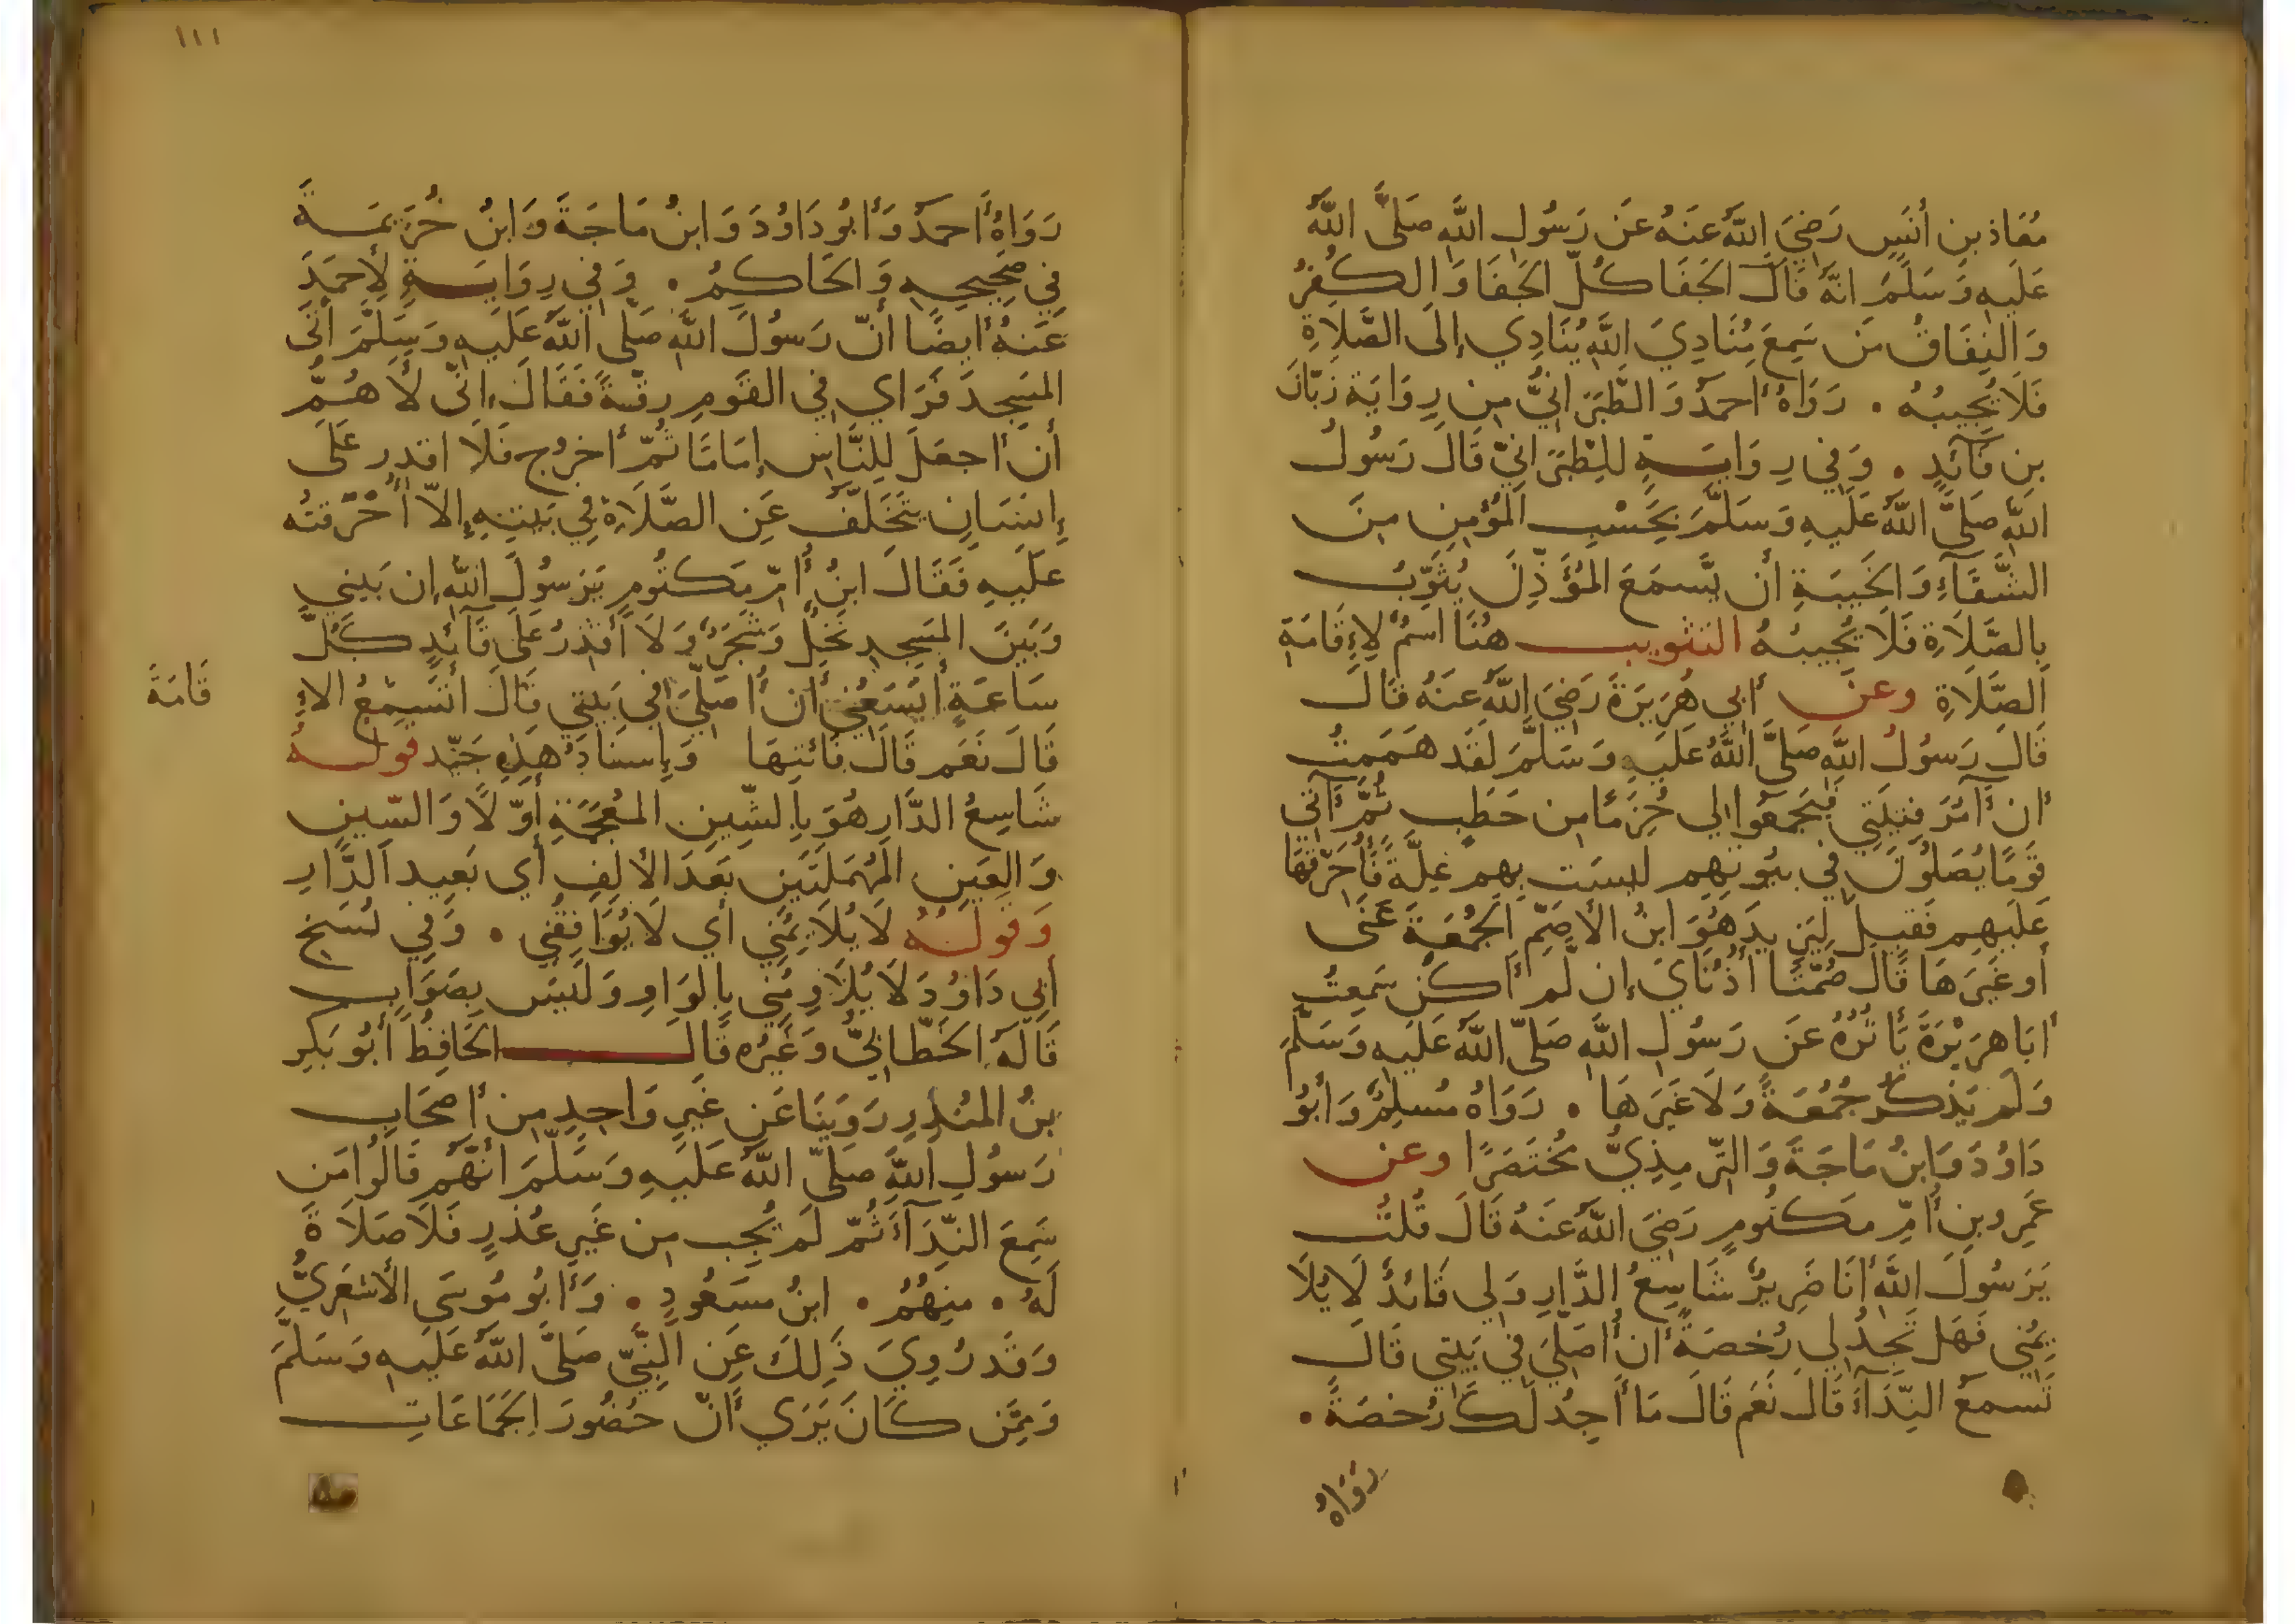 مُعَاذ بنِ أَنَسٍ رَضِيَ اللَّهُ عَنهُ عَن رَسُولِ اللَّهِ صَلَّى اللَّهُ
عَلَيهِ وَسَلَّمَ انَّهُ قَالَ الجَفَا كُلّ الجَفَا وَالكُفرُ
وَالنِفَاقُ مَن سَمِعَ مُنَادِيَ اللَّهِ يُنَادِي إلَى الصَّلَاةِ
فَلَا يُجِيبُهُ . رَوَاهُ أحمَدُ وَالطَّبَرَانِيُّ مِن رِوَايَةِ زَبَّانَ
بنِ فَآئدٍ . وَفِي رِوَايَةٍ لِلطَّبَرَانِيِّ قَالَ رَسُولُ
اللَّهِ صَلَّى اللَّهُ عَلَيهِ وَسَلَّمَ بِحَسْبِ المُؤمِنِ مِنَ
الشَّقَآءِ وَالخَيبَةِ أَن يَّسمَعَ المُؤَذِّنَ يُثَوِّبُ
بِالصَّلَاةِ فَلَا يُجِيبُهُ التثويب هُنَا اسمٌ لِإِقَامَةِ
الصَّلَاةِ وعن أبِي هُرَيرَةَ رَضِيَ اللَّهُ عَنهُ قَالَ
قَالَ رَسُولُ اللَّهِ صَلَّى اللَّهُ عَلَيهِ وَسَلَّمَ لَقَد هَمَمتُ
أَن آمُرَ فِتيَتِي فَيَجمَعُوا لِي حُزَمًا مِن حَطَبٍ ثُمَّ آتِي
قَومًا يُصَلُّونَ فِي بُيُوتِهِم لَيسَت بِهِم عِلَّةٌ فَأُحَرِّقهَا
عَلَيهِم فَقِيلَ لِيَزِيدَ هُوَ ابنُ الأَصَمِّ الجُمُعَةَ عَنَى
أو غَيرَهَا قَالَ صُمَّتَا أُذُنَايَ إن لَّم أَكُن سَمِعتُ
أَبَا هُرَيْرَةَ يَأثُرُهُ عَن رَسُولِ اللَّهِ صَلَّى اللَّهُ عَلَيهِ وَسَلَّمَ
وَلَم يَذكُر جُمُعَةً وَلَا غَيرَهَا . رَوَاهُ مُسلِمٌ وَأَبُو
دَاوُدَ وَابنُ مَاجَةَ وَالتِّرمِذِيُّ مُختَصَرًا وعن
عَمرِو بنِ أُمِّ مَكتُومٍ رَضِيَ اللَّهُ عَنهُ قَالَ قُلتُ
يَرَسُولَ اللَّهِ أنَا ضَرِيرٌ شَاسِعُ الدَّارِ وَلِي قَائدٌ لَا يُلَا
يِمُنِي فَهَل تَجِدُ لِي رُخصَةً أن أُصَلِّيَ فِي بَيتِي قَالَ
تَسمَعُ النِّدَآءَ قَالَ نَعَم قَالَ مَا أَجِدُ لَكَ رُخصَةً .
رَوَاهُ
١١١
رَوَاهُ أَحمَدُ وَأَبُو دَاوُدَ وَابنُ مَاجَةَ وَابنُ خُزَيمَةَ
فِي صَحِيحِهِ وَالحَاكِمُ . وَفِي رِوَايَةٍ لِأَحمَدَ
عَنهُ أَيضًا أَنّ رَسُولَ اللَّهِ صَلَّى اللَّهُ عَلَيهِ وَسَلَّمَ أتَى
المَسجِدَ فَرَاي فِي القَومِ رِقَّةً فَقَالَ إنِّي لَأَهُمُّ
أَن أَجعَلَ لِلنَّاسِ إمَامًا ثُمّ أَخرُج فَلَا اقدِر عَلَى
إنسَانٍ يَتَخَلَّفُ عَنِ الصَّلَاةِ فِي بَيتِهِ إلَّا أَحْرَقتُه
عَلَيهِ فَقَالَ ابنُ أُمِّ مَكتُومٍ يَرَسُولَ اللَّهِ إن بَينِي
وَبَينَ المَسجِدِ نَخلٌ وَشَجَرٌ وَلَا أَقدِرُ عَلَى قَآئدٍ كُلَّ
سَاعَةٍ أيَسَعُنِي أَن أُصَلِّيَ فِي بَيتِي قَالَ أتَسمَعُ الإِ
قَامَةَ
قَالَ نَعَم قَالَ فَائتِهَا وَإسنَادُ هَذِهِ جَيّد قولـه
شَاسِعُ الدَّارِ هُوَ بِالشِّينِ المُعجَمَةِ أَوّلًا وَالسِّينِ
وَالعَينِ المُهمَلَتَينِ بَعدَ الأَلِفِ أَي بَعِيد الدَّارِ
وَقولـه لَا يُلَايِمُنِي أَي لَا يُوَافِقُنِي . وَفِي نُسَخِ
أَبِي دَاوُدَ لَا يُلَاوِمُنِي بِالوَاوِ وَلَيسَ بِصَوَابٍ
قَالَهُ الخَطَّابِيُّ وَغَيرُه قَالَ الحَافِظُ أَبُو بَكرِ
بنُ المُنذِرِ رَوَينَا عَن غَيرِ وَاحِدٍ مِن أَصحَابِ
رَسُولِ اللَّهِ صَلَّى اللَّهُ عَلَيهِ وَسَلَّمَ أنَّهُم قَالُوا مَن
سَمِعَ النِّدَآءَ ثُمّ لَم يُجِب مِن غَيرِ عُذرٍ فَلَا صَلَاةَ
لَهُ . مِنهُمُ . ابنُ مَسعُودٍ . وَأَبُو مُوسَى الأَشعَرِيُّ
وَقَد رُوِيَ ذَلِكَ عَنِ النَّبِيِّ صَلَّى اللَّهُ عَلَيهِ وَسَلَّمَ
وَمِمَّن كَانَ يَرَي أَنّ حُضُورَ الجَمَاعَاتِ